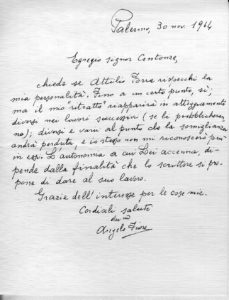 Palermo, 30 nov. 1964
Egregio signor Centonze,
chiede se Attilio Forre rispecchi la
mia personalità. Fino a un certo punto, sì;
ma il mio "ritratto" riapparirà in atteggiamenti
diversi nei lavori successivi (se li pubblicheran-
no); diversi e vari al punto che la somiglianza
andrà perduta, e io stesso non mi riconoscerò più
in essi. L'autonomia a cui Lei accenna, di-
pende dalla finalità che lo scrittore si pro-
pone di dare al suo lavoro.
Grazie dell'interesse per le cose mie.
Cordiali saluti
dal
Angelo Fiore